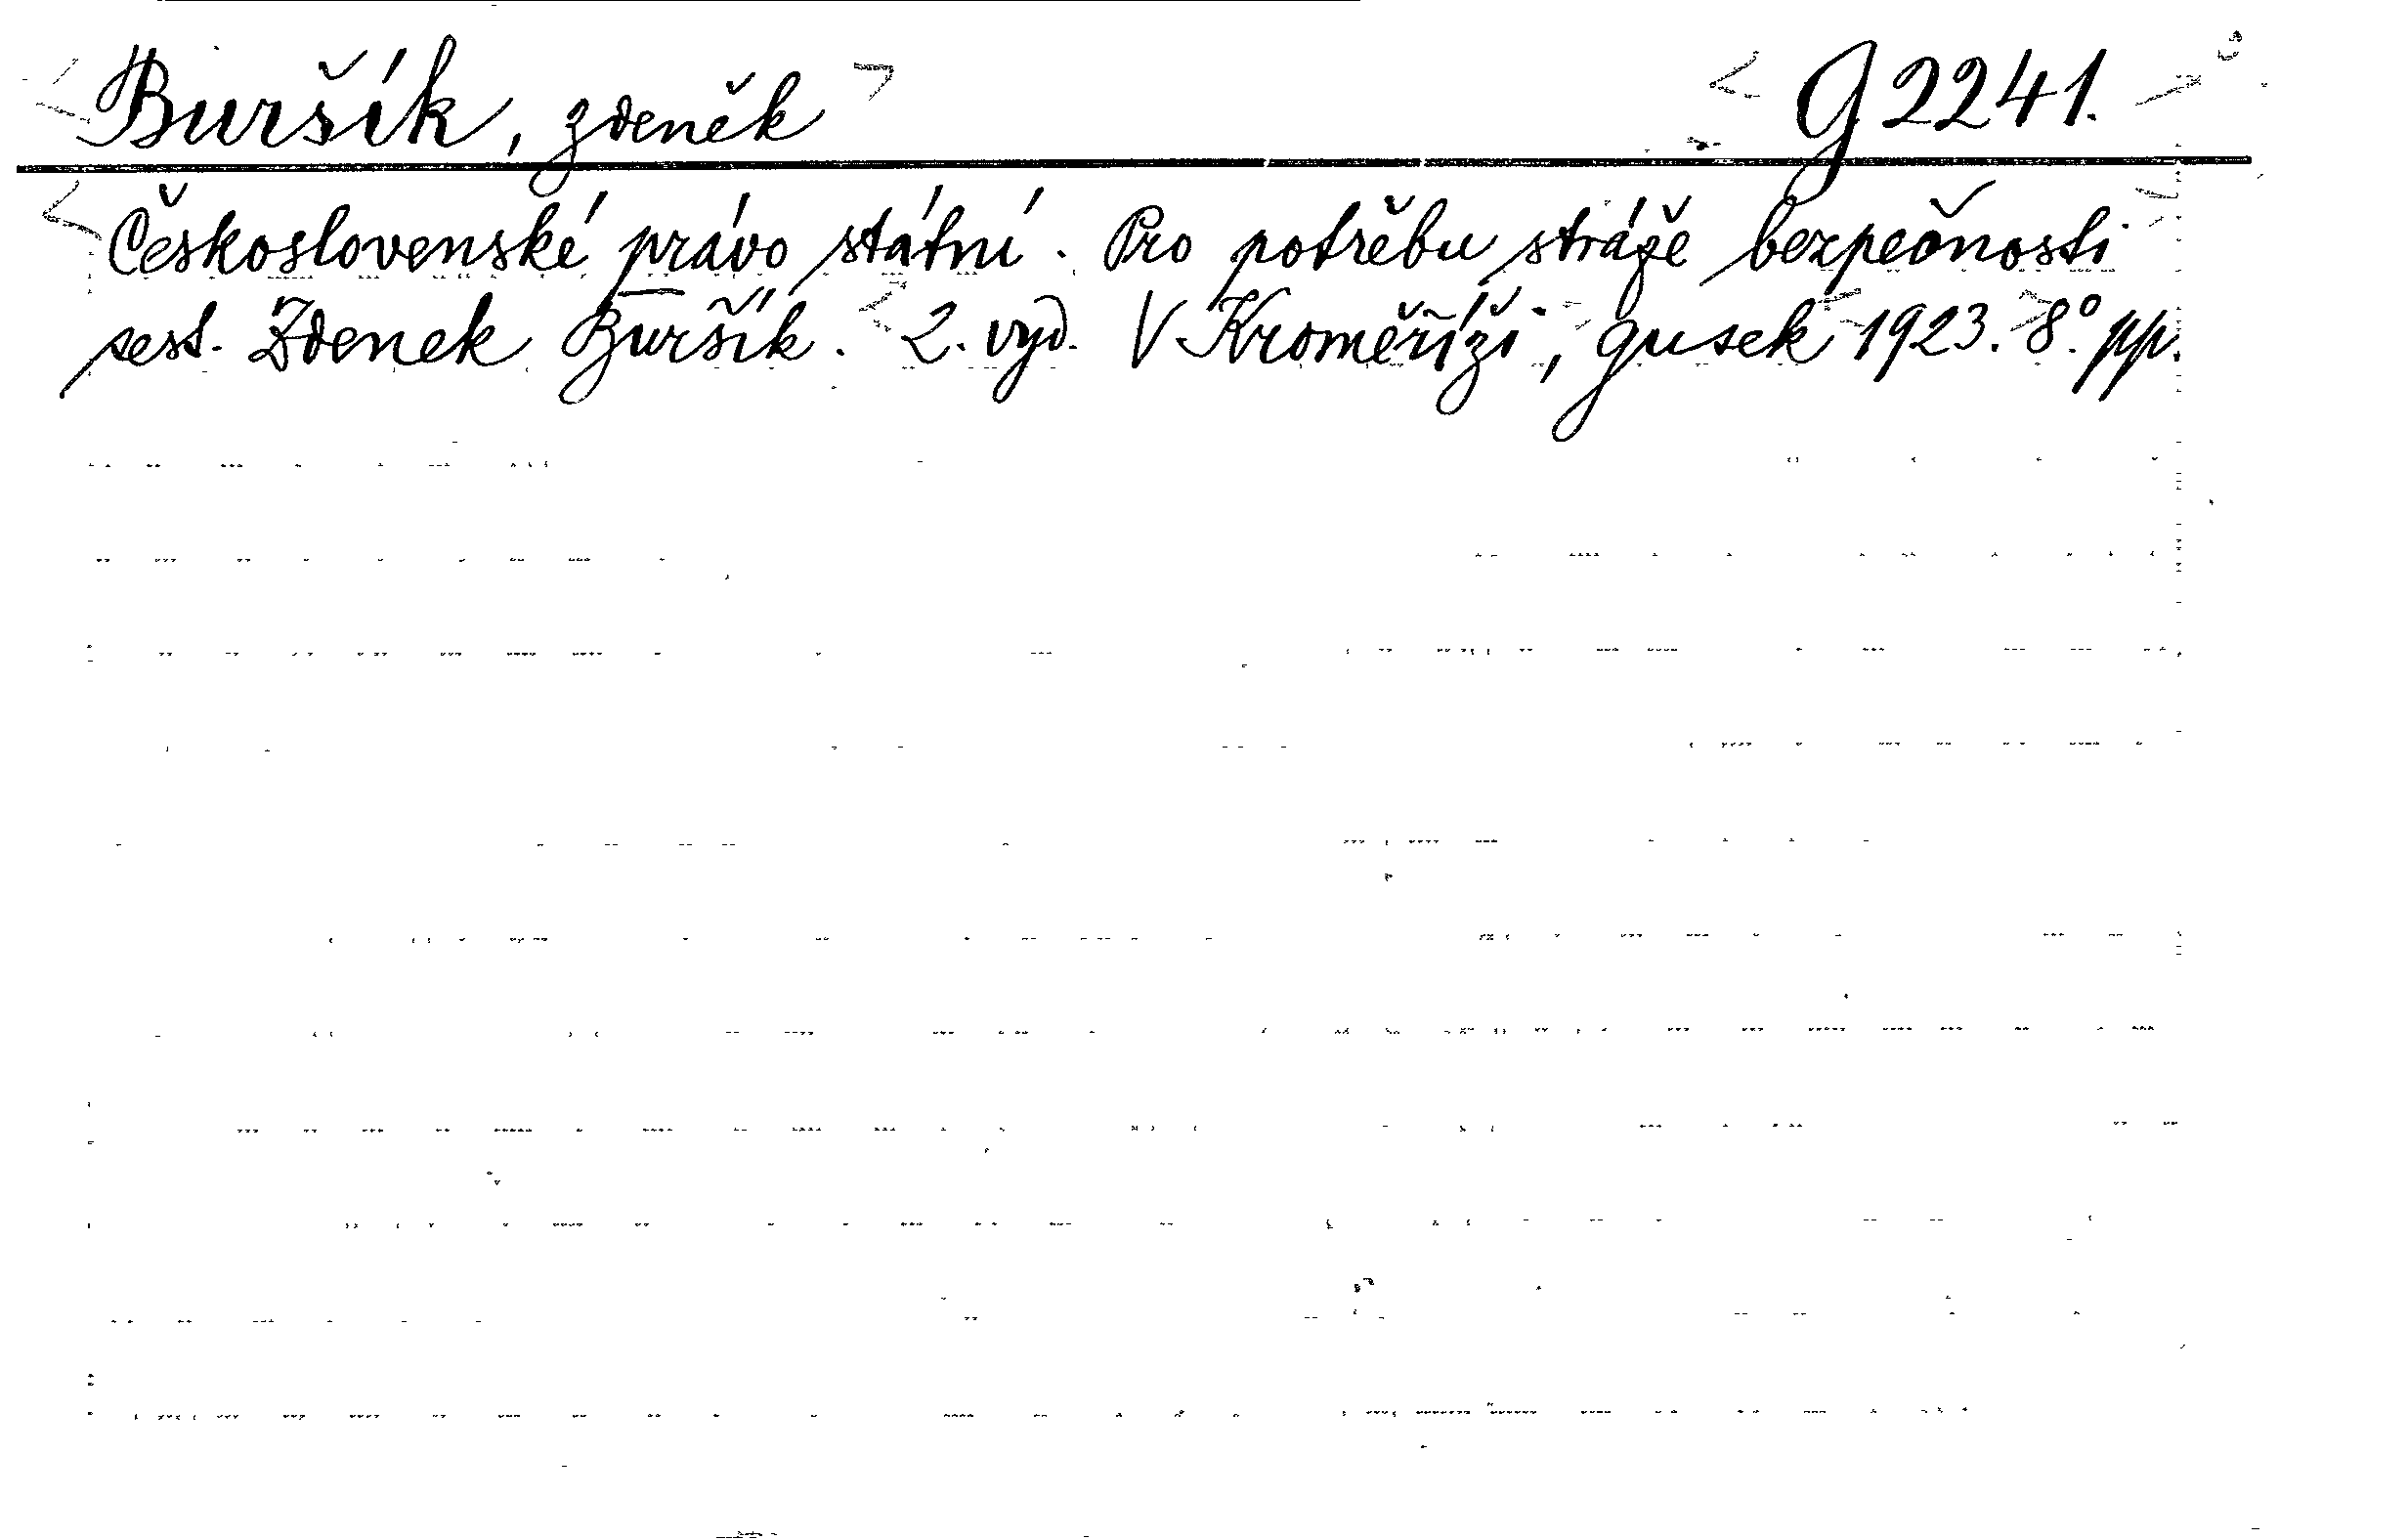 Buršík, Zdeněk G 2241.
Československé právo státní. Pro potřebu stráže bezpečnosti
sest. Zdenek Buršík. 2. vyd. V Kroměříži, Gusek 1923. 8°. pp.